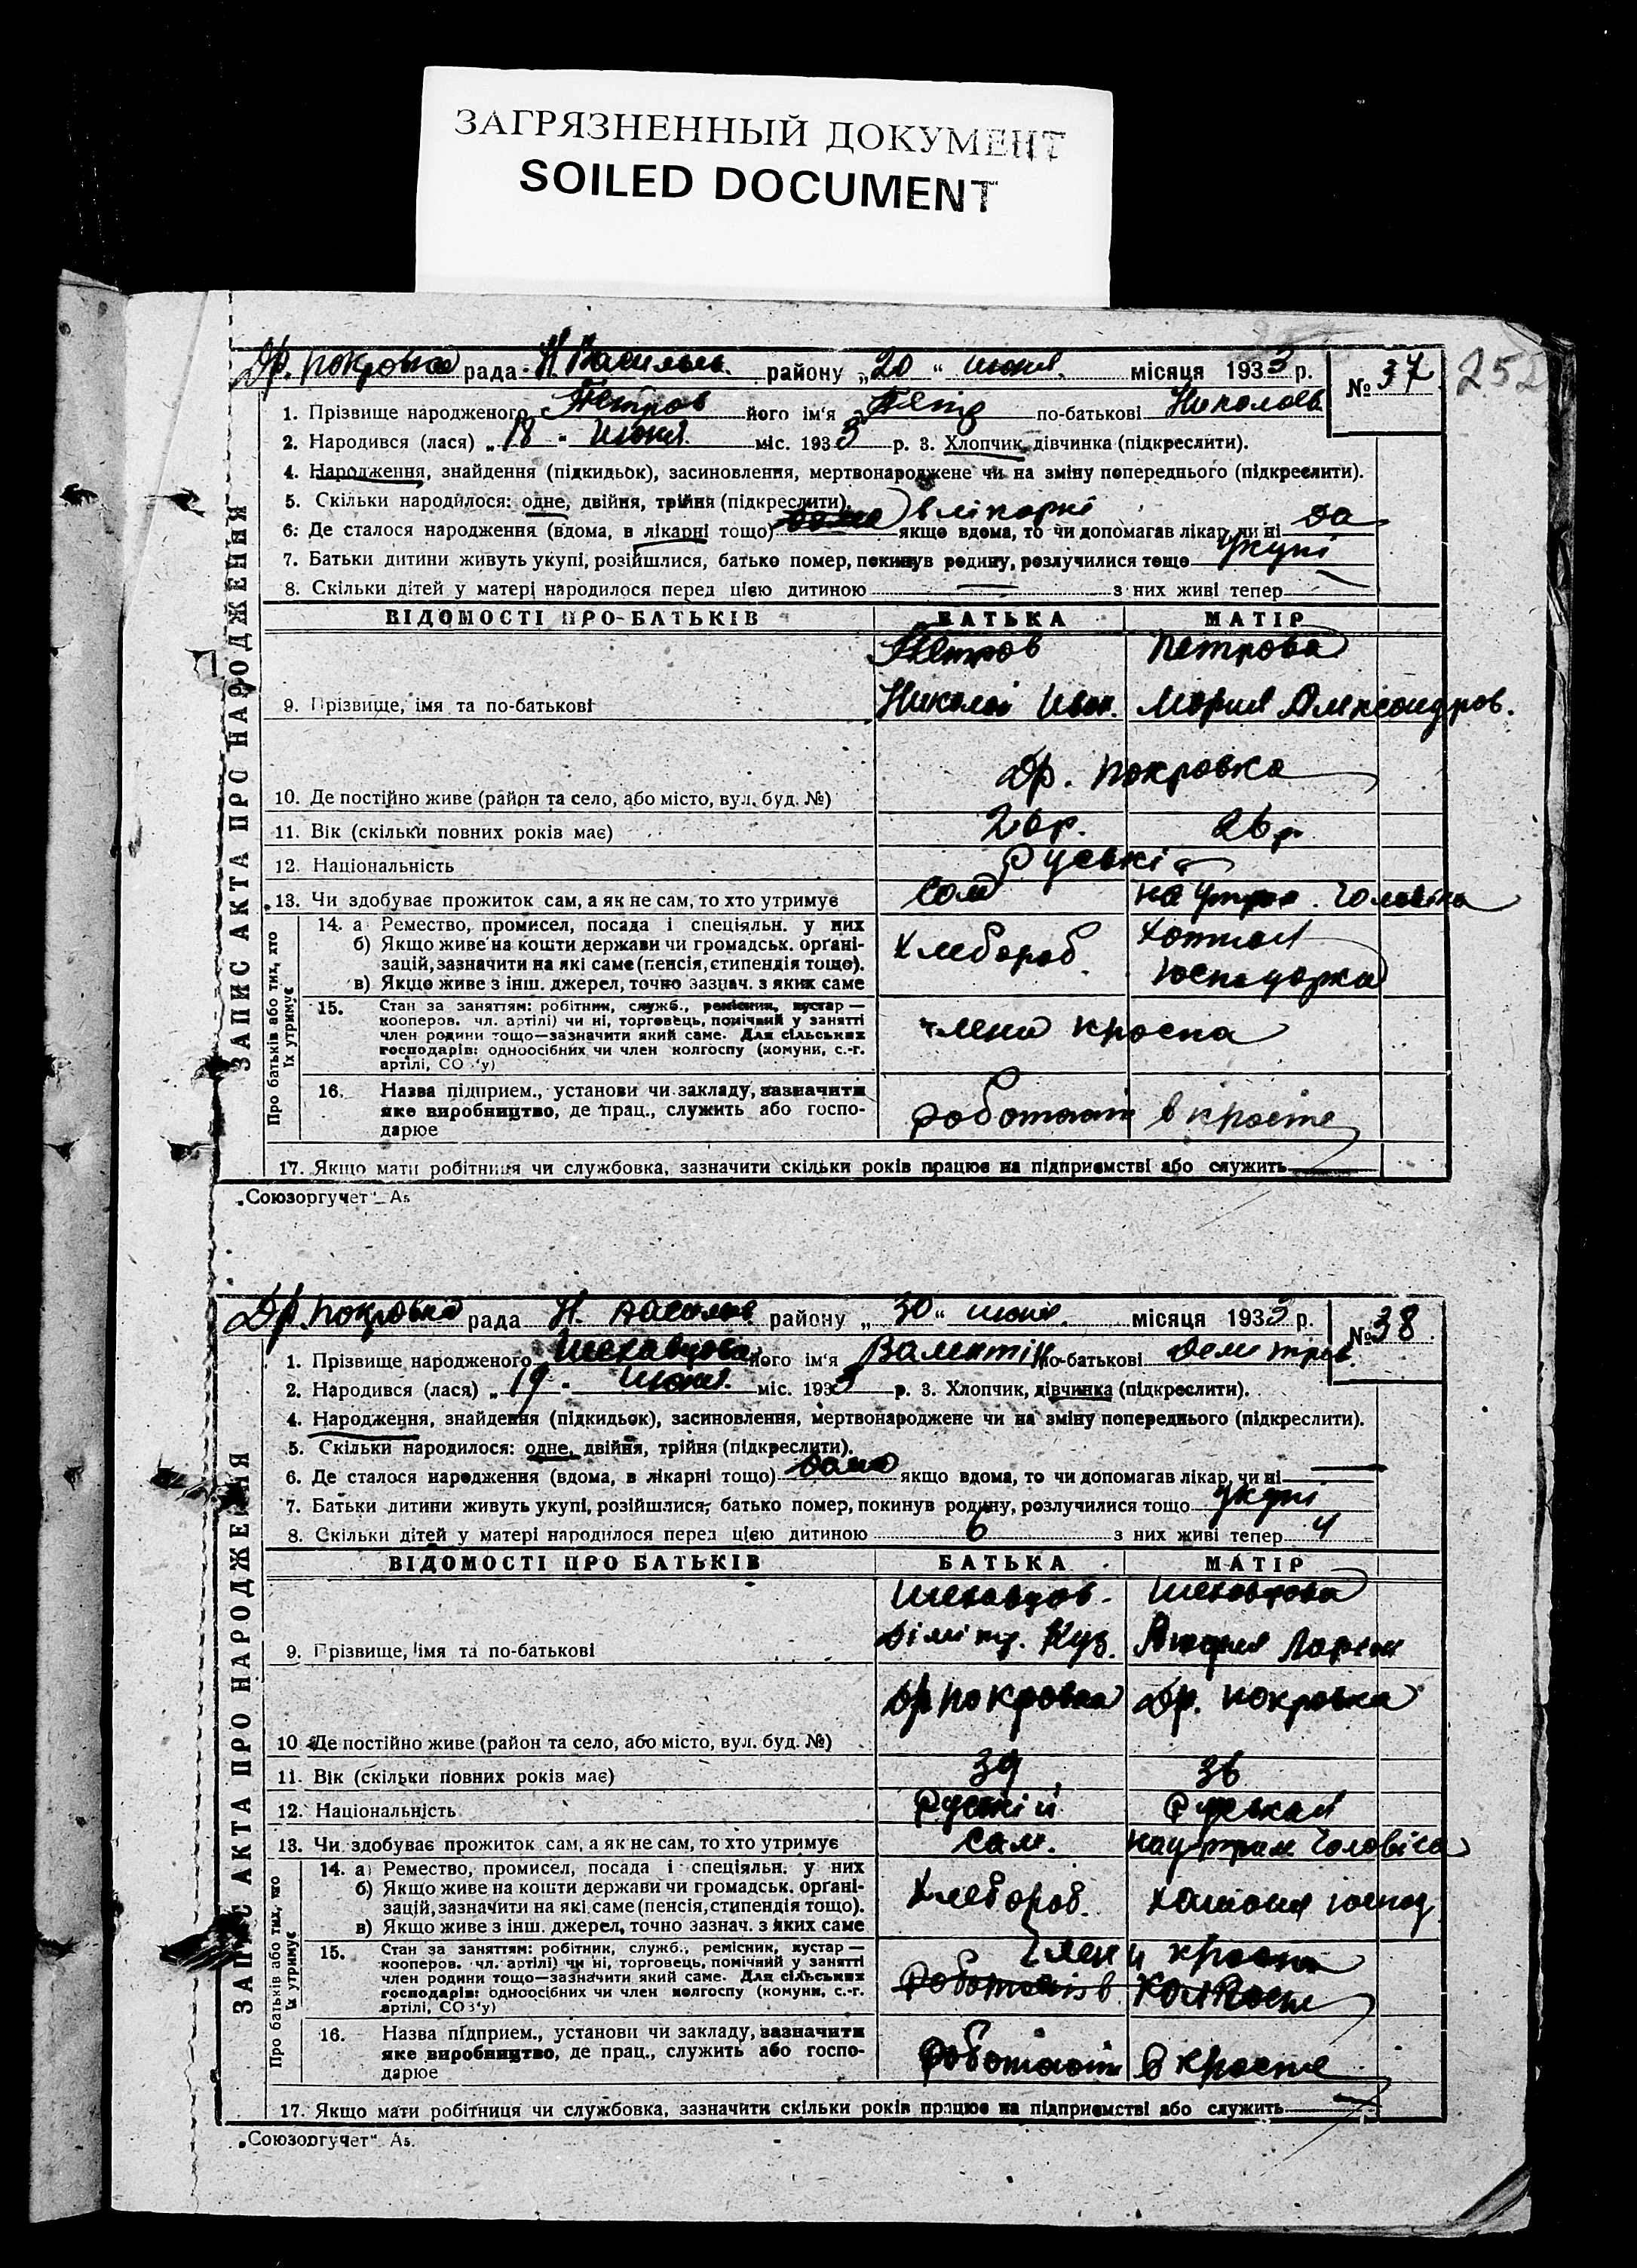 ЗАГРЯЗНЕННЫЙ ДОКУМЕНТ
SOILED DOCUMENT
252
Др. Покровка рада Н Василів. району „20" июня. місяця 1933 р. № 37
1. Прізвище народженого Петров його ім'я Петр по-батькові Николаев
2. Народився (лася) „18" июня. міс. 1933 р. 3. Хлопчик, дівчинка (підкреслити).
4. Народження, знайдення (підкидьок), засиновлення, мертвонароджене чи на зміну попереднього (підкреслити).
5. Скільки народилося: одне, двійня, трійня (підкреслити).
в лікарні
6. Де сталося народження (вдома, в лікарні тощо) якщо вдома, то чи допомагав лікар, чи ні да
7. Батьки дитини живуть укупі, розійшлися, батько помер, покинув родину, розлучилися тощо укупі
8. Скільки дітей у матері народилося перед цією дитиною — з них живі тепер —
ВІДОМОСТІ ПРО БАТЬКІВ БАТЬКА МАТІР
Петров Петрова
9. Прізвище, імя та по-батькові Николай Иван. Мария Александров.
Др. Покровка
10. Де постійно живе (район та село, або місто, вул. буд. №)
11. Вік (скільки повних років має) 26 р. 26 р.
12. Національність Руські
13. Чи здобуває прожиток сам, а як не сам, то хто утримує Сам на чоловіка
14. а) Ремество, промисел, посада і спеціяльн. у них
б) Якщо живе на кошти держави чи громадськ. органі-
зацій, зазначити на які саме (пенсія, стипендія тощо).
в) Якщо живе з інш. джерел, точно зазнач. з яких саме
Хлебороб
15. Стан за заняттям: робітник, служб., ремісник, кустар —
кооперов. чл. артілі) чи ні, торговець, помічний у занятті
член родини тощо—зазначити який саме. Для сільських
господарів: одноосібних чи член колгоспу (комуни, с.-г.
артілі, СОЗ'у)
члени
16. Назва підприєм., установи чи закладу, зазначити
яке виробництво, де прац., служить або госпо-
дарює
работают в
17. Якщо мати робітниця чи службовка, зазначити скільки років працює на підприємстві або служить —
Про батьків або тих, хто їх утримує
ЗАПИС АКТА ПРО НАРОДЖЕННЯ
„Союзоргучет" А5
Др. Покровка рада Н. Василів району „30" июня. місяця 1933 р. № 38
1. Прізвище народженого Шехавцова його ім'я Валентін по-батькові Дємітров.
2. Народився (лася) „19" июня. міс. 1933 р. 3. Хлопчик, дівчинка (підкреслити).
4. Народження, знайдення (підкидьок), засиновлення, мертвонароджене чи на зміну попереднього (підкреслити).
5. Скільки народилося: одне, двійня, трійня (підкреслити).
6. Де сталося народження (вдома, в лікарні тощо) дома якщо вдома, то чи допомагав лікар, чи ні —
7. Батьки дитини живуть укупі, розійшлися, батько помер, покинув родину, розлучилися тощо укупі
8. Скільки дітей у матері народилося перед цією дитиною 6 з них живі тепер 4
ВІДОМОСТІ ПРО БАТЬКІВ БАТЬКА МАТІР
Шехавцов Шехавцова
9. Прізвище, імя та по-батькові Діміт. Куз.
Др Покровка Др. Покровка
10. Де постійно живе (район та село, або місто, вул. буд. №)
11. Вік (скільки повних років має) 39 36
12. Національність Рускій Руськая
13. Чи здобуває прожиток сам, а як не сам, то хто утримує Сам. чоловіка
14. а) Ремество, промисел, посада і спеціяльн. у них
б) Якщо живе на кошти держави чи громадськ. органі-
зацій, зазначити на які саме (пенсія, стипендія тощо).
в) Якщо живе з інш. джерел, точно зазнач. з яких саме
Хлебороб.
15. Стан за заняттям: робітник, служб., ремісник, кустар —
кооперов. чл. артілі) чи ні, торговець, помічний у занятті
член родини тощо—зазначити який саме. Для сільських
господарів: одноосібних чи член колгоспу (комуни, с.-г.
артілі, СОЗ'у)
члени
16. Назва підприєм., установи чи закладу, зазначити
яке виробництво, де прац., служить або госпо-
дарює
работают в
17. Якщо мати робітниця чи службовка, зазначити скільки років працює на підприємстві або служить —
Про батьків або тих, хто їх утримує
ЗАПИС АКТА ПРО НАРОДЖЕННЯ
„Союзоргучет" А5.